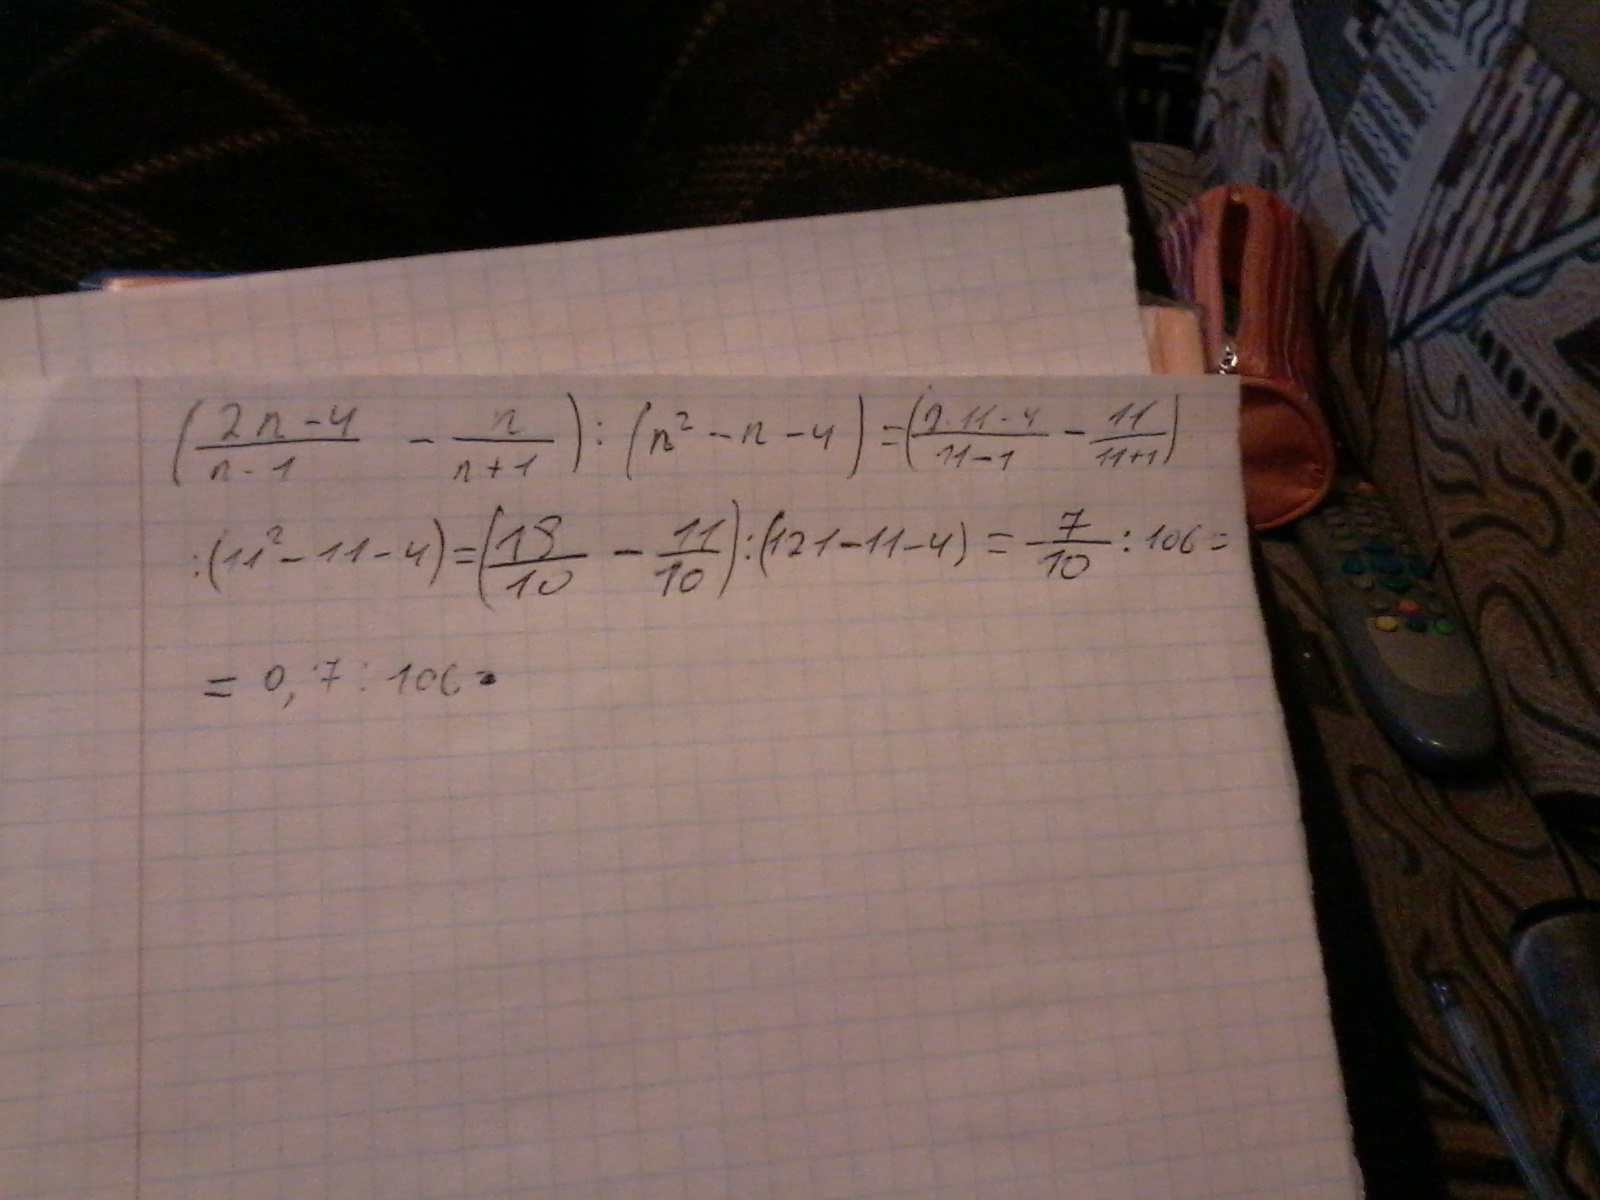 (2n-4/n-1 - n/n+1) : (n² - n - 4) = (2·11-4/11-1 - 11/11+1)
:(11² - 11 - 4) = (18/10 - 11/10) : (121 - 11 - 4) = 7/10 : 106 =
= 0,7 : 106 =